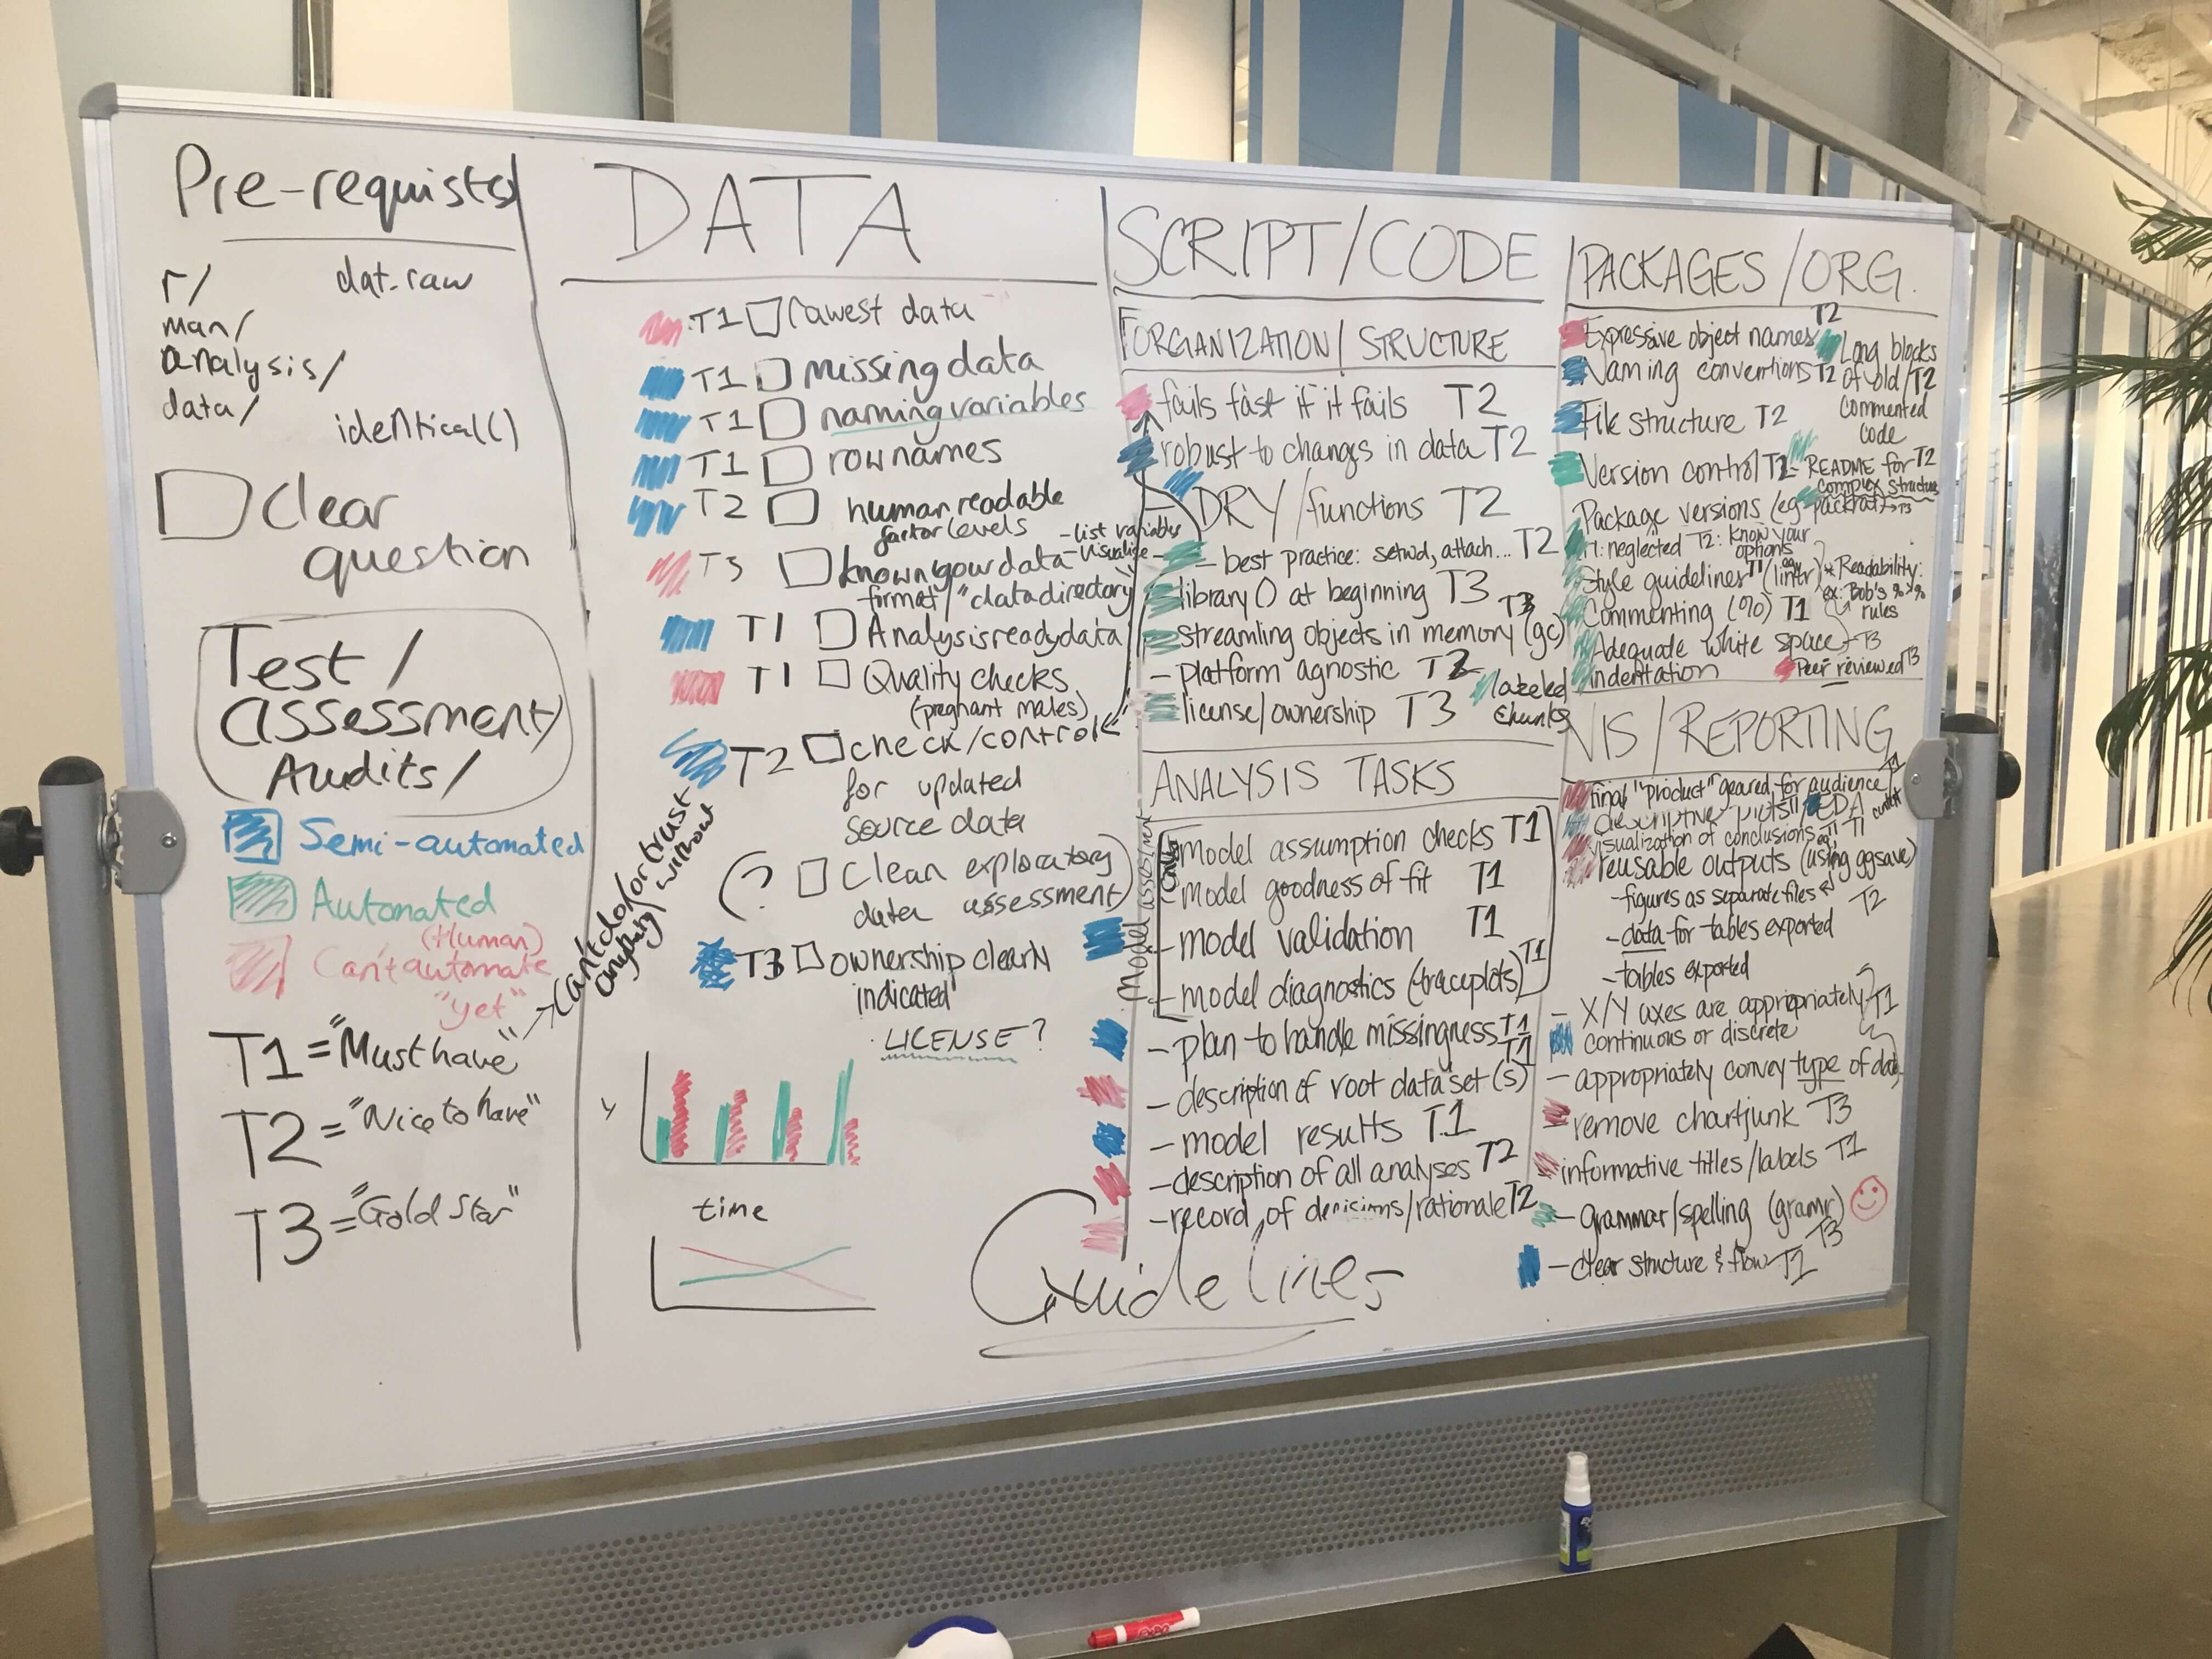 Pre-requists
r/
dat-raw
man/
analysis/
data/
identical()
clear
question
Test/
assessment/
Audits/
Semi-automated
Automated
(Human)
Can't automate
"yet"
T1 = "Must have" → Can't do/or trust
anything without
T2 = "Nice to have"
T3 = "Gold Star"
DATA
T1 rawest data
T1 missing data
T1 naming variables
T1 rownames
T2 human readable
factor levels
- list variables
- visualize
T3 know your data
format/"data directory"
T1 Analysis ready data
T1 Quality checks
(pregnant males)
T2 check/control
for updated
source data
(? Clean exploratory
data assessment)
T3 ownership clearly
indicated
LICENSE?
y
time
Guidelines
SCRIPT/CODE
ORGANIZATION/STRUCTURE
fails fast if it fails T2
robust to changes in data T2
DRY/functions T2
- best practice: setwd, attach... T2
library() at beginning T3
streamling objects in memory (gc) T3
- platform agnostic T2
license/ownership T3
labeled
chunks
ANALYSIS TASKS
Model assessment
model assumption checks T1
model goodness of fit T1
- model validation T1
- model diagnostics (traceplots) T1
- plan to handle missingness T1
- description of root data set(s) T1
- model results T1
- description of all analyses T2
- record of decisions/rationale T2
PACKAGES/ORG.
Expressive object names T2
Naming conventions T2
File structure T2
Long blocks
of old/T2
commented
code
Version control T1
- README for T2
complex structure
Package versions (eg packrat) → T3
T1: neglected T2: know your
options
Style guidelines T1 (lintr)
* Readability:
ex: Bob's %>%
rules
Commenting (%) T1
Adequate white space T3
indentation
Peer reviewed T3
VIS/REPORTING
final "product" geared for audience T1
descriptive plots EDA
visualization of conclusions T1
reusable outputs (using ggsave)
- figures as separate files T2
- data for tables exported
- tables exported
- X/Y axes are appropriately T1
continuous or discrete
- appropriately convey type of data
remove chartjunk T3
informative titles/labels T1
- grammar/spelling (gramr)
T3
- clear structure & flow T2